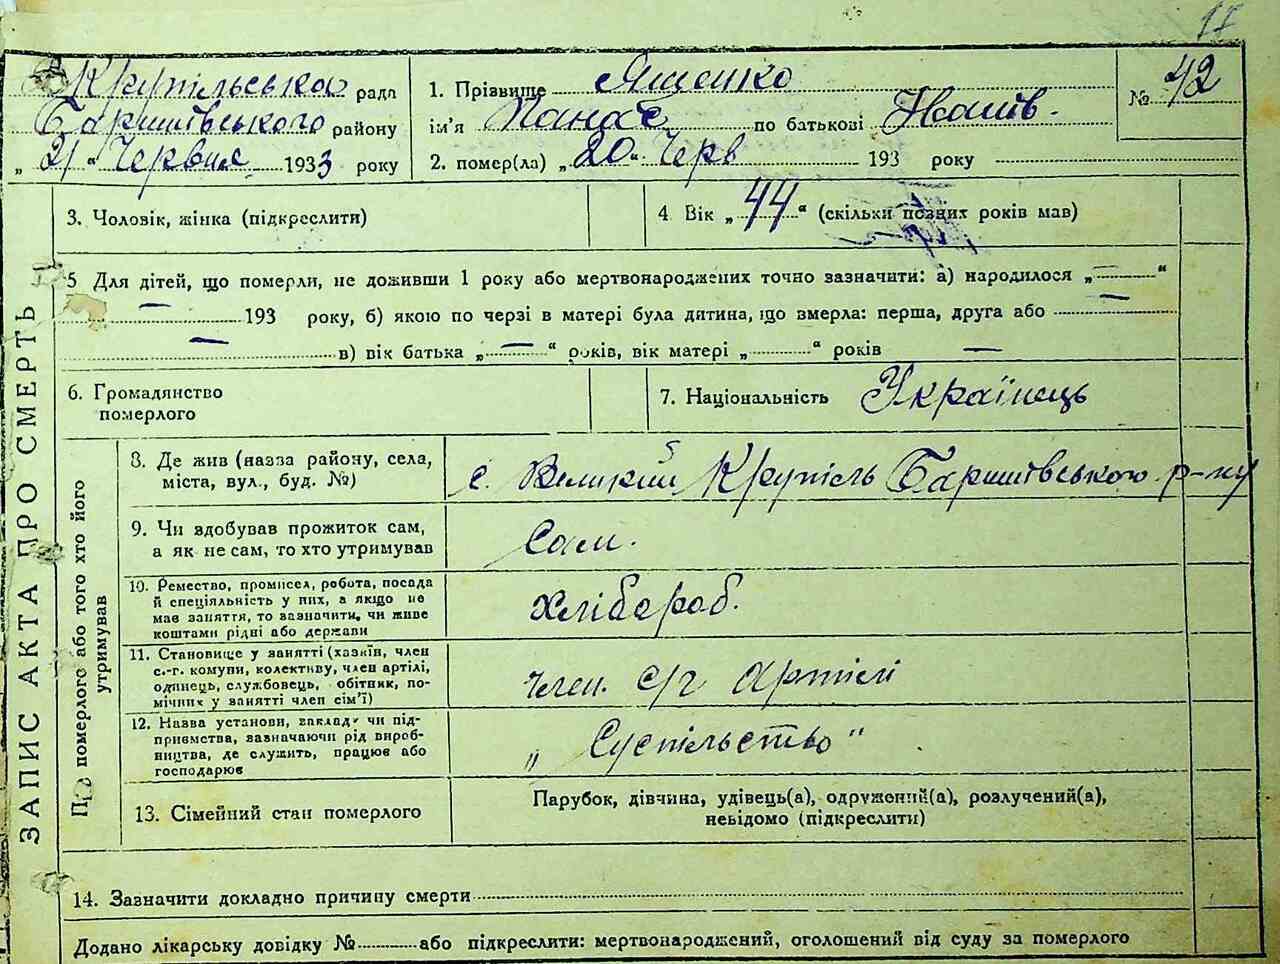 17
Крупільська рада
Баришівського району
„ 21 “ Червня 1933 року
1. Прізвище Ященко
ім'я Панас по батькові Іванів.
2. помер(ла) „ 20 “ Черв 193 року
№ 42
3. Чоловік, жінка (підкреслити)
4. Вік „ 44 “ (скільки повних років мав)
5 Для дітей, що померли, не доживши 1 року або мертвонароджених точно зазначити: а) народилося „ — “
— 193 року, б) якою по черзі в матері була дитина, що змерла: перша, друга або —
— в) вік батька „ — “ років, вік матері „ “ років —
6. Громадянство
померлого
7. Національність Українець
ЗАПИС АКТА ПРО СМЕРТЬ
Про померлого або того хто його
утримував
8. Де жив (назва району, села,
міста, вул., буд. №)
с. Великий Крупіль Баришівського р-ну
9. Чи здобував прожиток сам,
а як не сам, то хто утримував
Сам.
10. Ремество, промисел, робота, посада
й спеціяльність у них, а якщо не
має заняття, то зазначити, чи живе
коштами рідні або держави
хлібороб.
11. Становище у занятті (хазяїн, член
с.-г. комуни, колективу, член артілі,
одинець, службовець, обітник, по-
мічних у занятті член сім'ї)
член. с/г артілі
12. Назва установи, заклад чи під-
приємства, зазначаючи рід вироб-
ництва, де служить, працює або
господарює
„ Суспільство “
13. Сімейний стан померлого
Парубок, дівчина, удівець(а), одружений(а), розлучений(а),
невідомо (підкреслити)
14. Зазначити докладно причину смерти
Додано лікарську довідку № або підкреслити: мертвонароджений, оголошений від суду за померлого